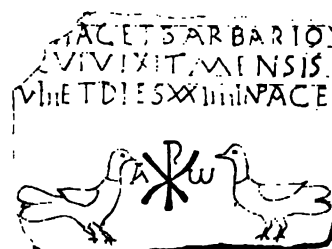 IACET BARBARIO
VIVIXIT MENSIS
VIIII ET DIES XXIIII IN PACE
A ☧ ω